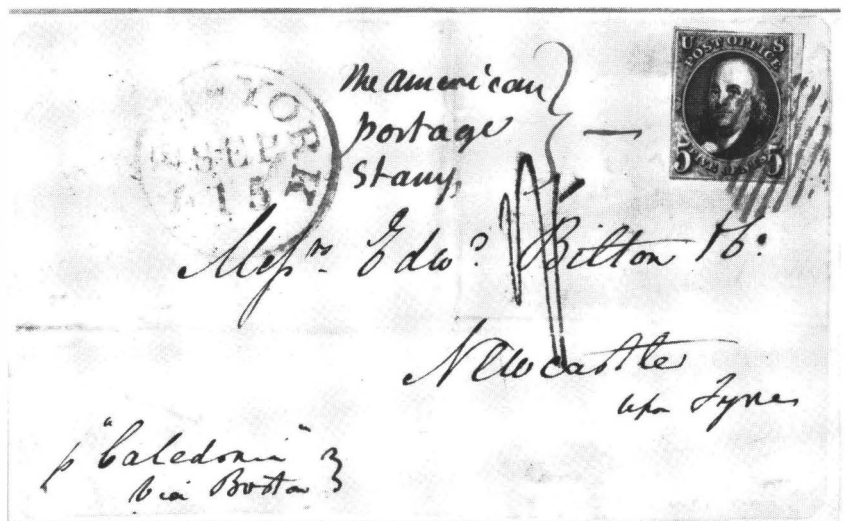 YORK
SEP
15
The American
Postage
Stamp
U S
POST OFFICE
5 FIVE CENTS 5
Messrs. Edwd. Bilton & Co.
Newcastle
upon Tyne
p "Caledonia"
via Boston